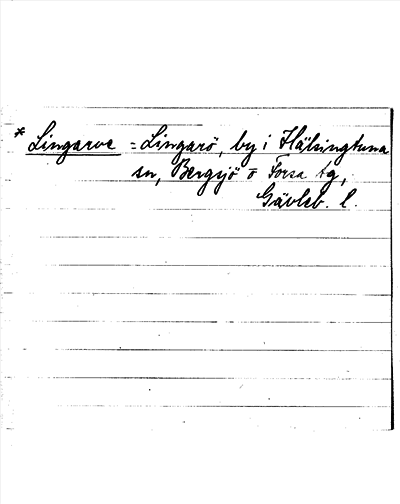 * Lingarve = Lingarö, by i Hälsingtuna
sn, Bergsjö o Forsa tg,
Gävleb. l.